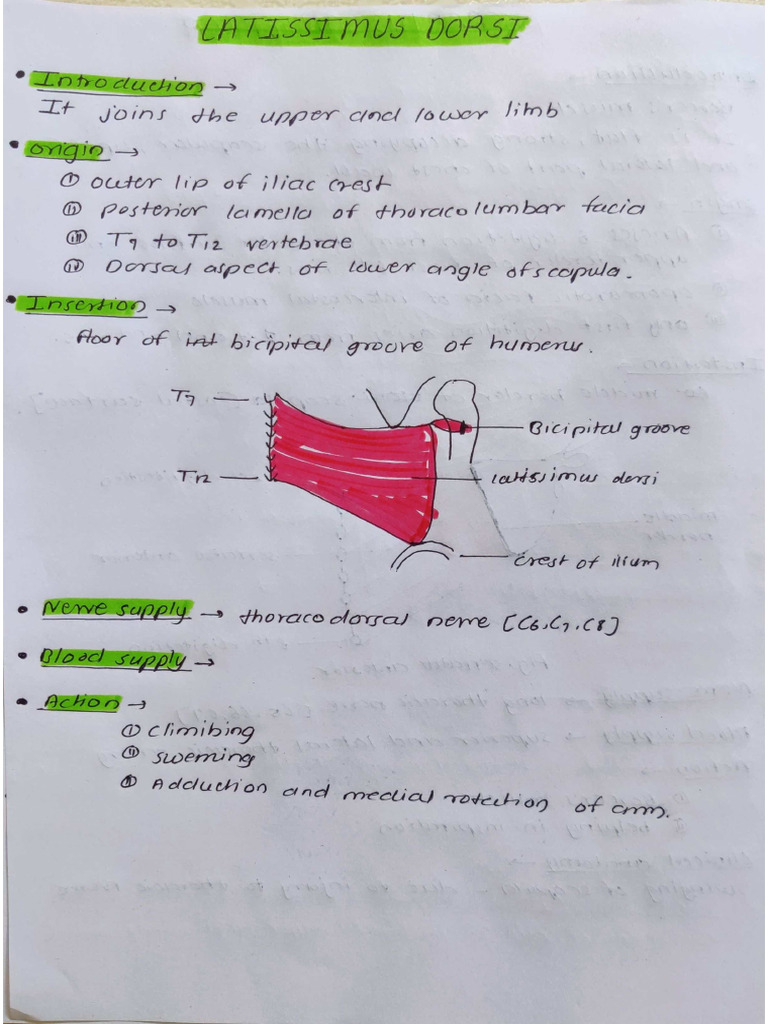 LATISSIMUS DORSI
• Introduction →
It joins the upper and lower limb
• origin →
① outer lip of iliac crest
ⅱ Posterior lamella of thoracolumbar facia
ⅲ T9 to T12 vertebrae
ⅳ Dorsal aspect of lower angle of scapula.
• Insertion →
floor of bicipital groove of humerus.
T9
Bicipital groove
T12
latissimus dorsi
crest of ilium
• Nerve supply → thoracodorsal nerve [C6, C7, C8]
• Blood supply →
• Action →
① climibing
ⅱ sweming
ⅲ Adduction and medial rotection of arm.